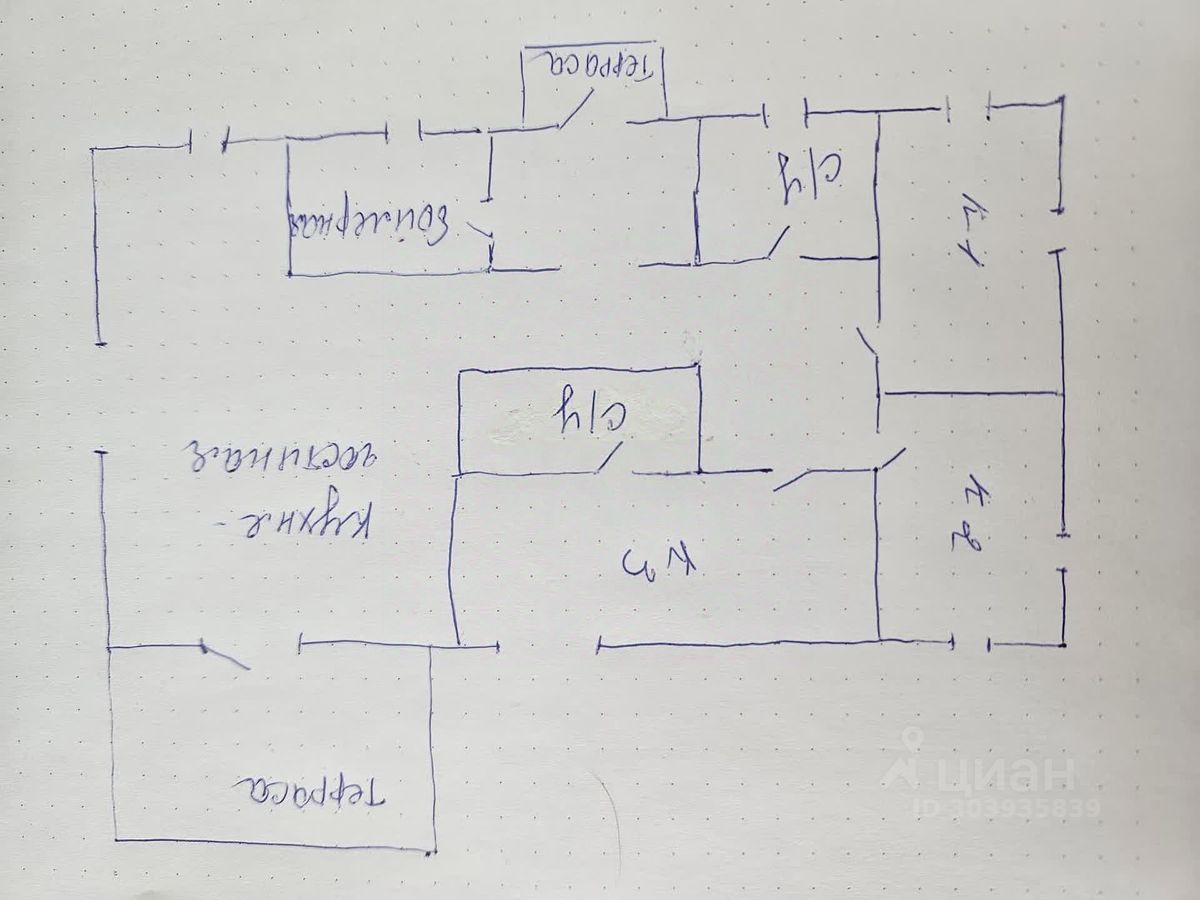 терраса
с/у
к-1
бойлерная
с/у
гостиная
кухня-
к2
к3
терраса
циан
ID 303935839